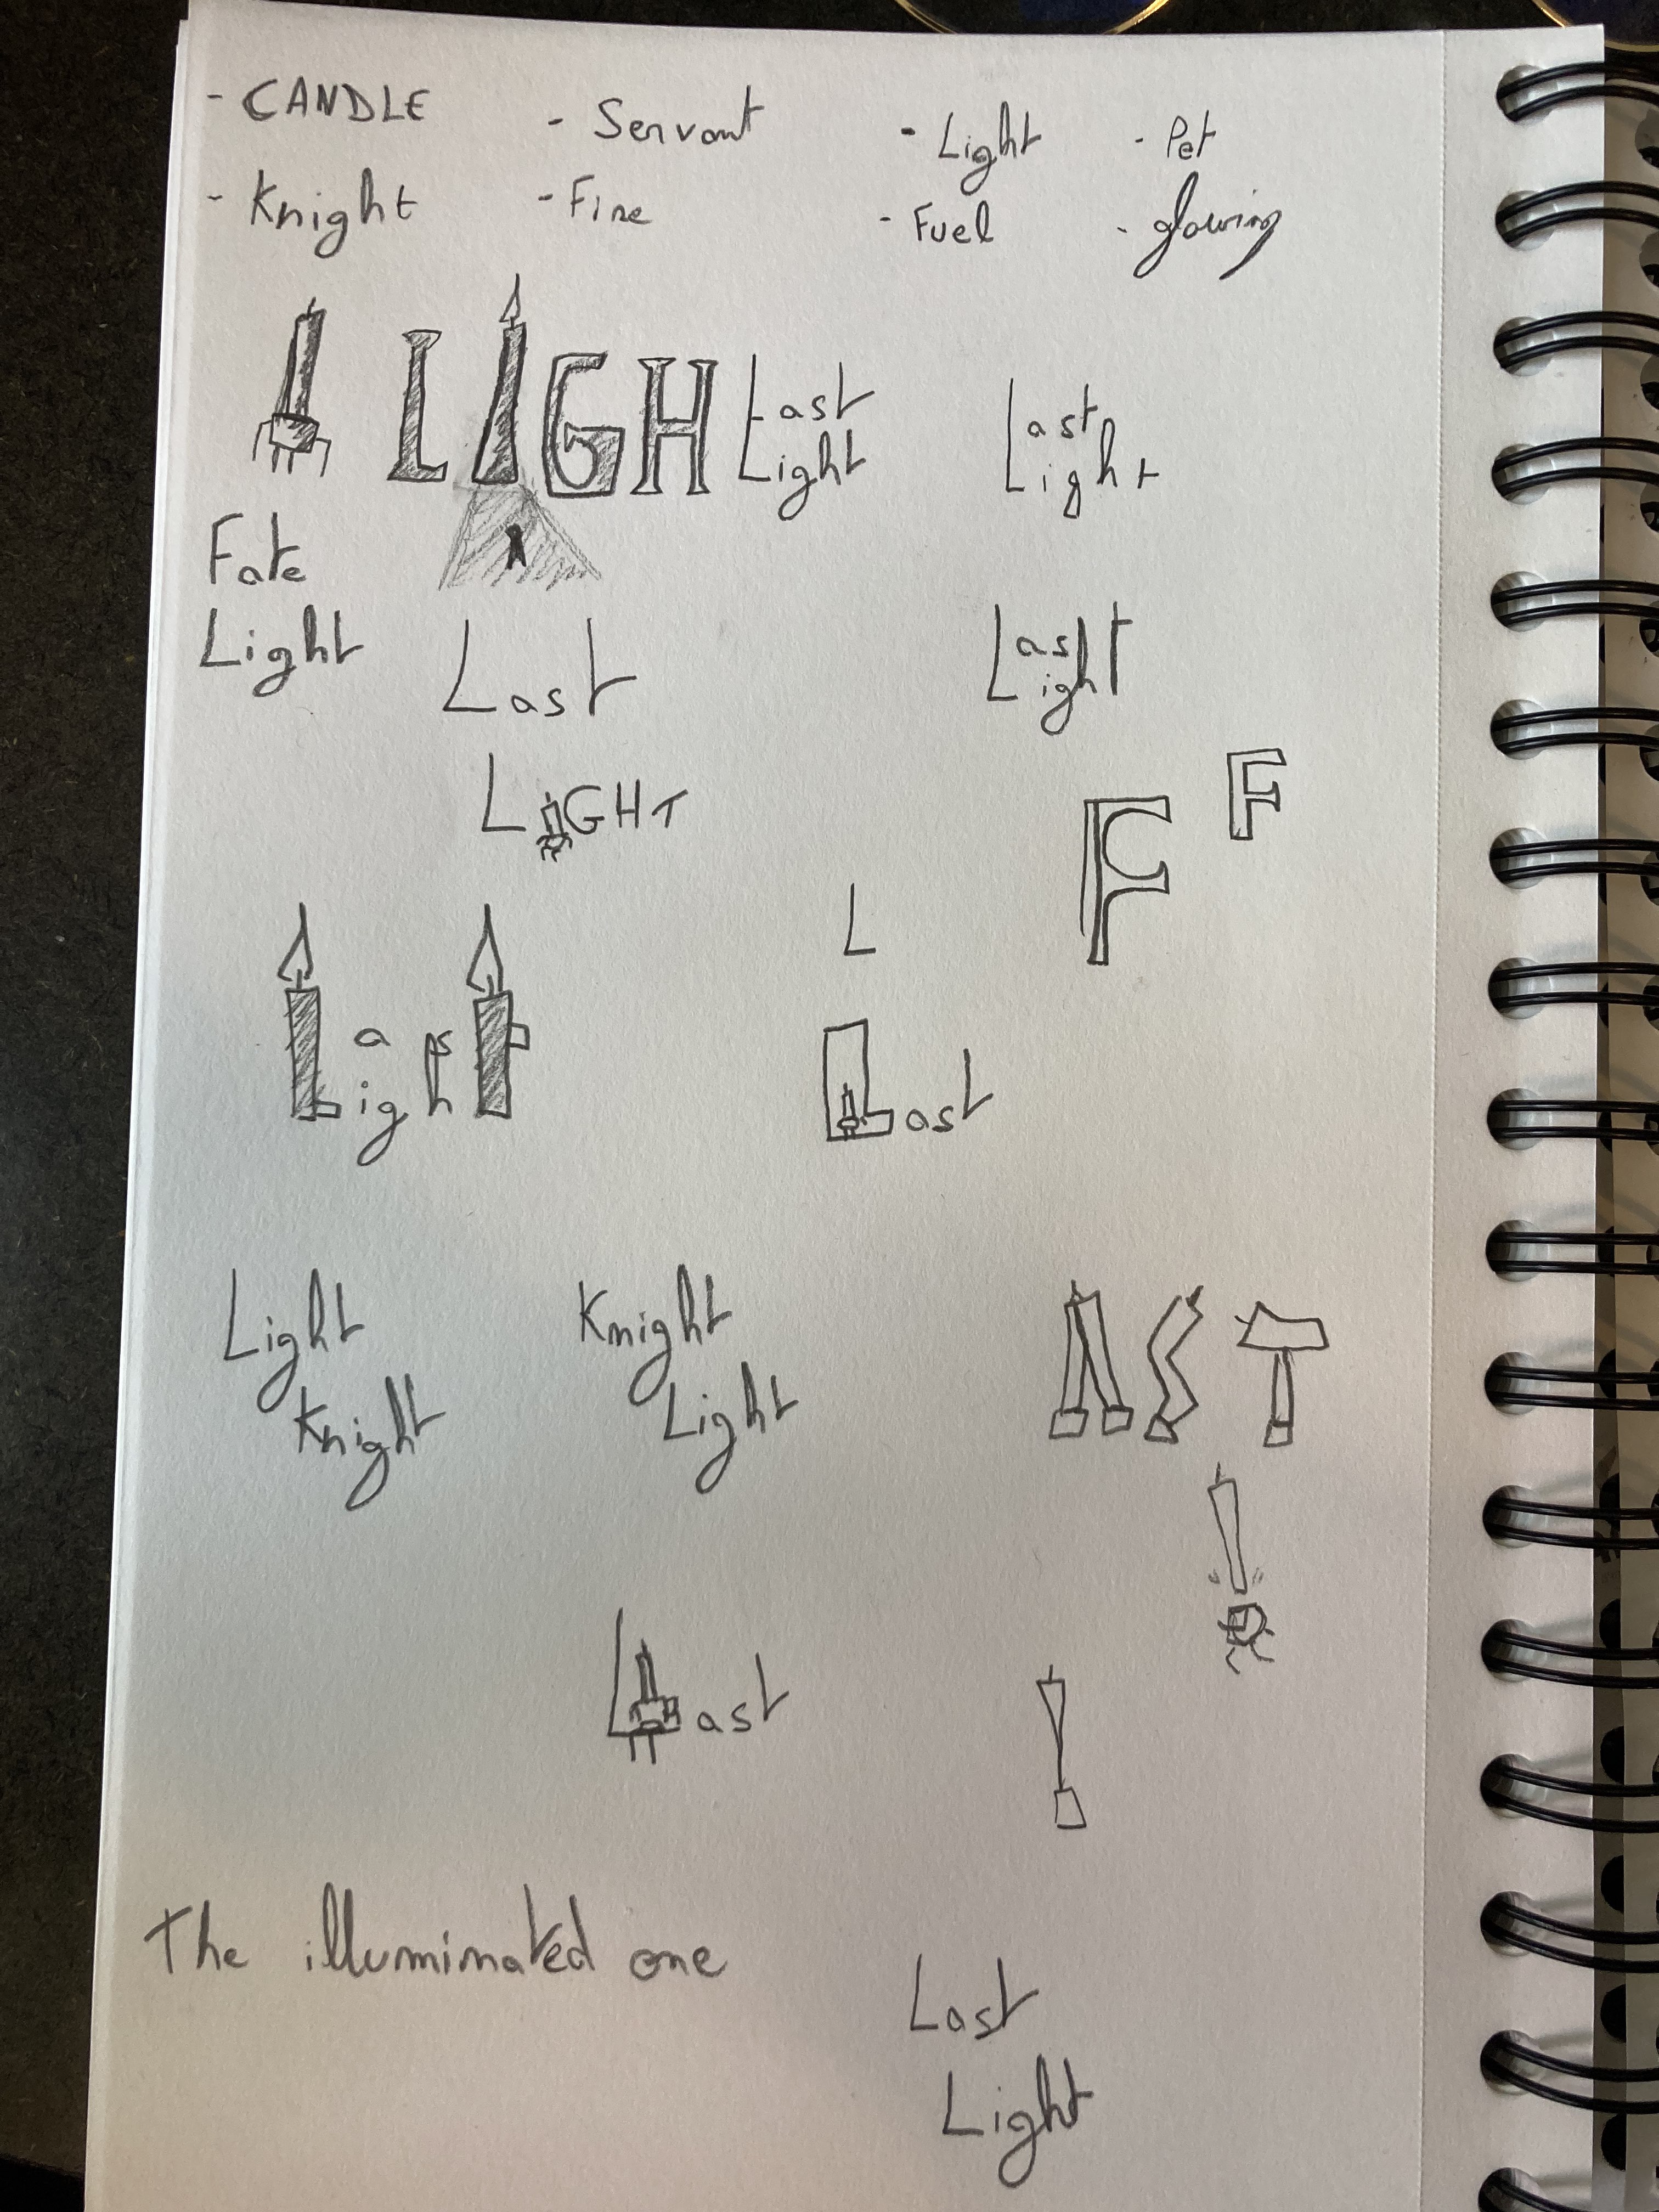 - CANDLE - Servant - Light - Pet
- Knight - Fire - Fuel - glowing
LIGH
Last
Light
Last
Light
Fate
Light
Last
LIGHT
Last
Light
F F
Last
Light
L
Last
Light
Knight
Knight
Light
AST
Last
The illuminated one
Last
Light